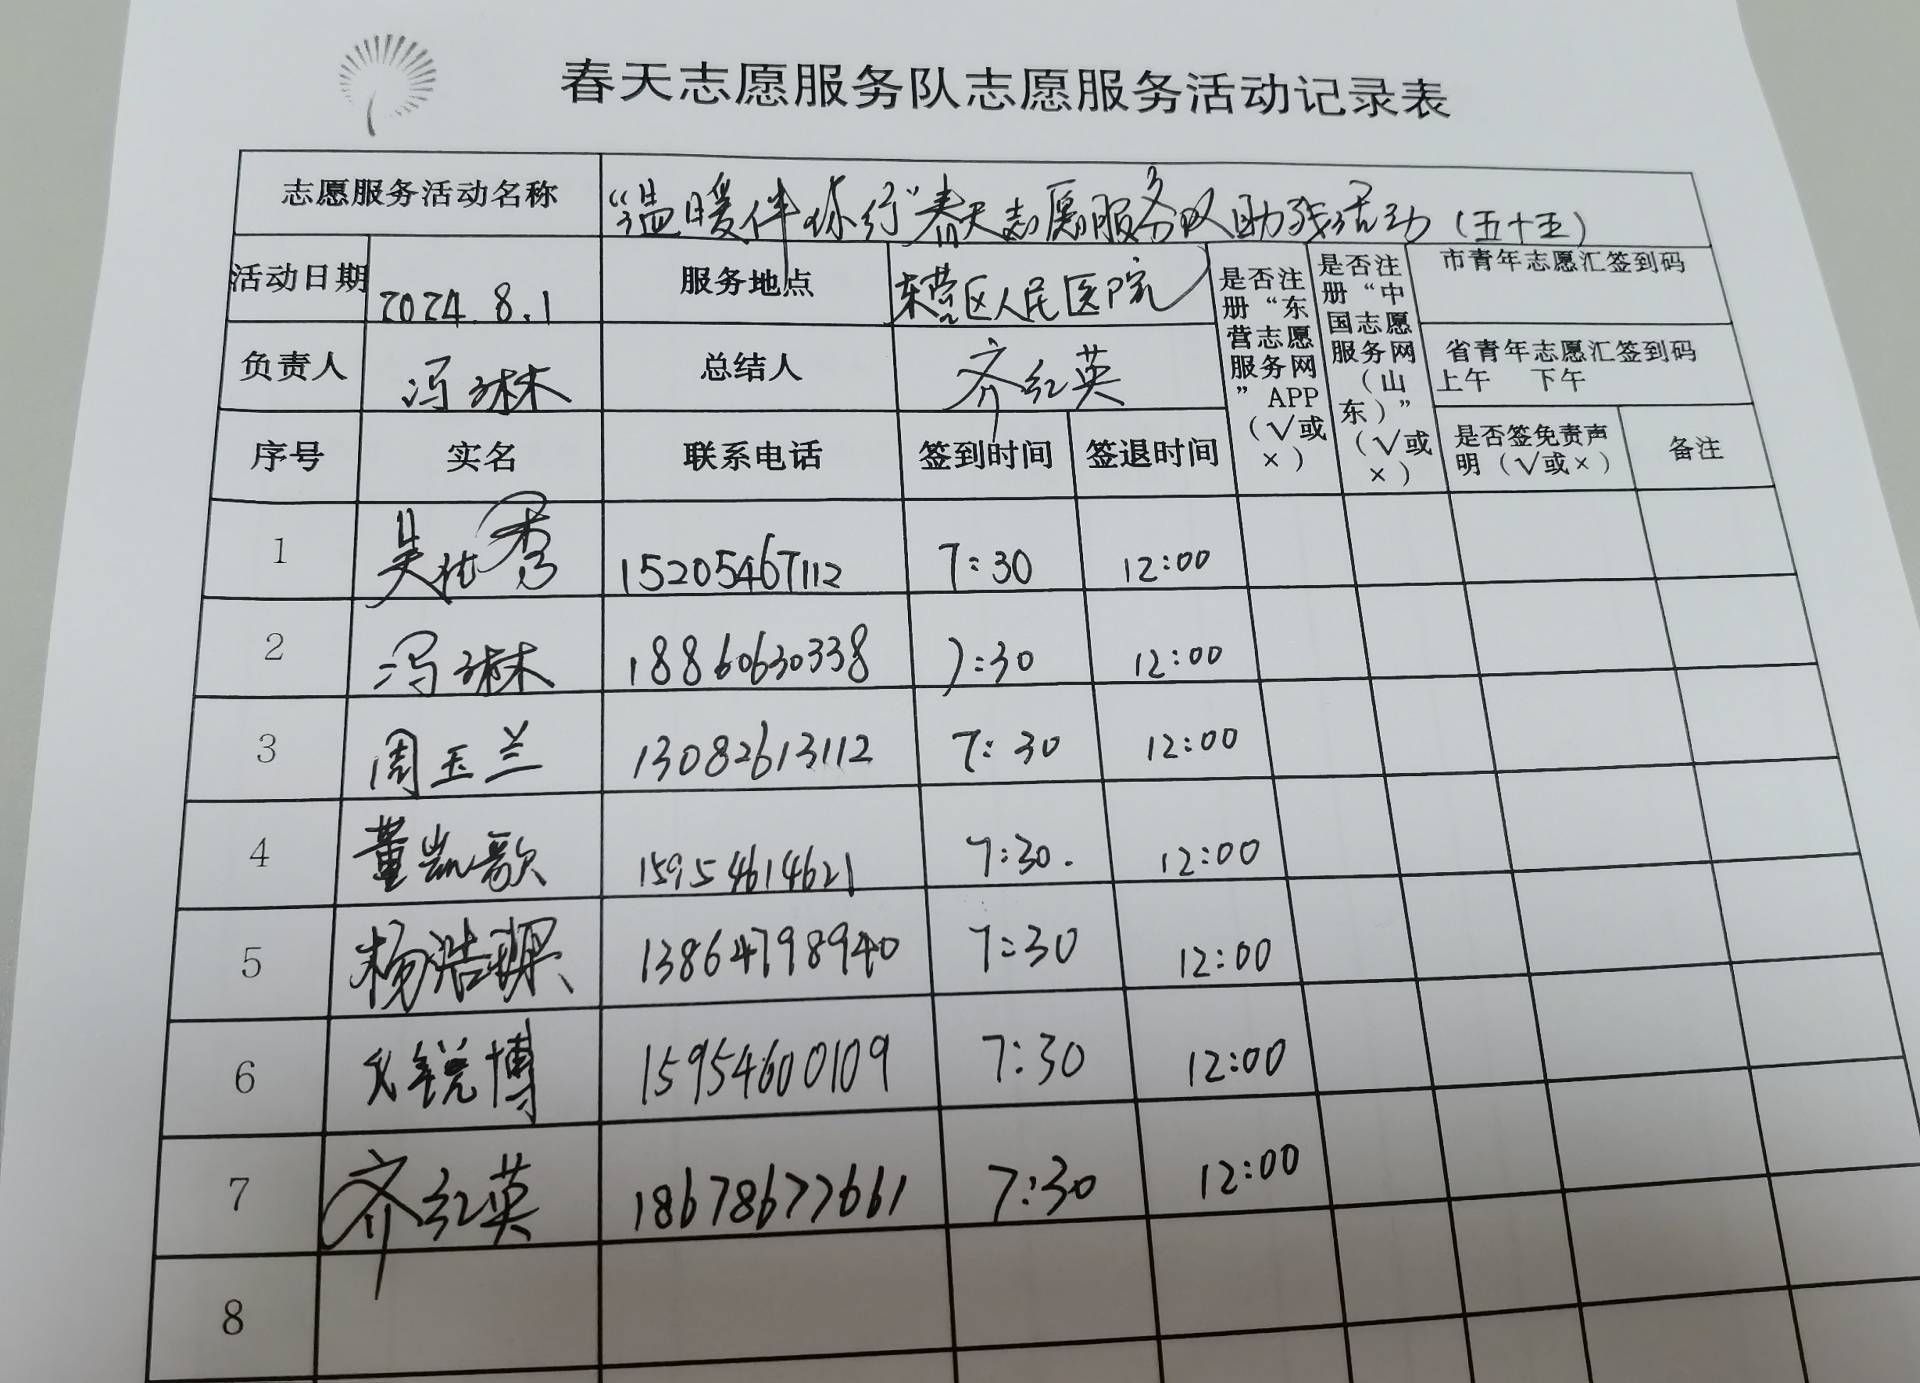 春天志愿服务队志愿服务活动记录表
志愿服务活动名称 “温暖伴你行”春天志愿服务队助残活动（五十五）
活动日期 2024.8.1 服务地点 东营区人民医院
是否注册“东营志愿服务网”APP（√或×）
是否注册“中国志愿服务网（山东）”（√或×）
市青年志愿汇签到码
负责人 冯琳 总结人 齐红英
省青年志愿汇签到码
上午 下午
序号 实名 联系电话 签到时间 签退时间 是否签免责声明（√或×） 备注
1 吴 秀 15205467112 7:30 12:00
2 冯琳 18860630338 7:30 12:00
3 周玉兰 13082613112 7:30 12:00
4 董凯歌 15954614621 7:30. 12:00
5 杨浩 13864798940 7:30 12:00
6 锐博 15954600109 7:30 12:00
7 齐红英 18678677661 7:30 12:00
8